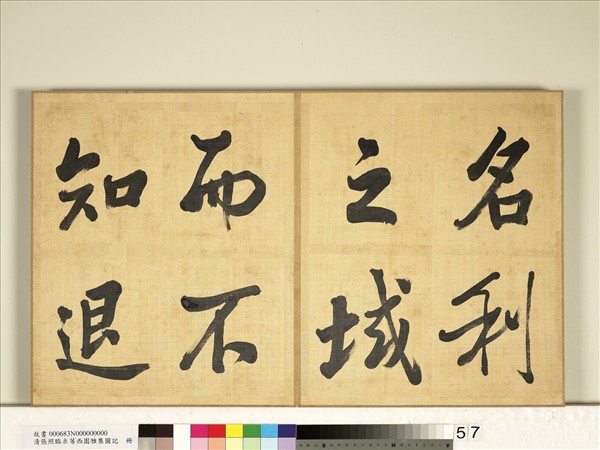 名利
之域
而不
知退
故書 000683N000000000
清張照臨米芾西園雅集圖記 冊
57